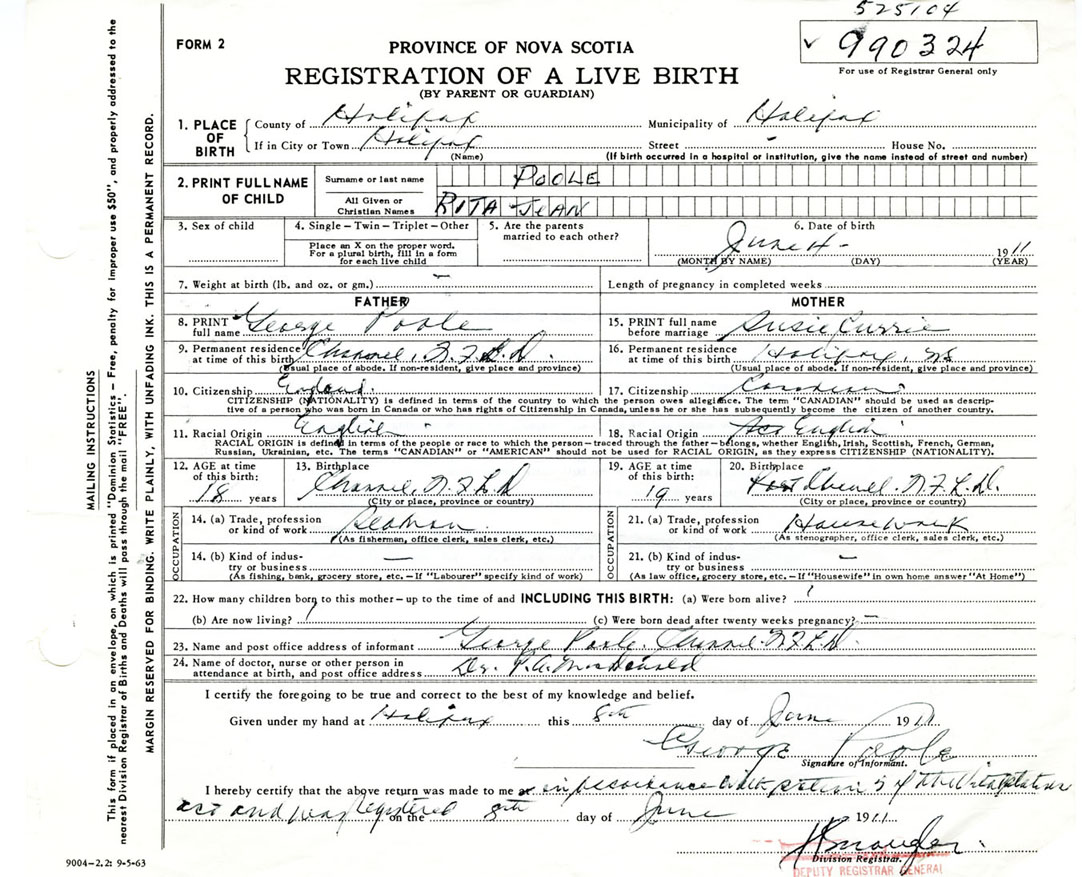 525104
FORM 2
PROVINCE OF NOVA SCOTIA
✓ 990324
REGISTRATION OF A LIVE BIRTH
For use of Registrar General only
(BY PARENT OR GUARDIAN)
1. PLACE OF BIRTH County of Halifax Municipality of Halifax
If in City or Town Halifax Street - House No.
(Name) (If birth occurred in a hospital or institution, give the name instead of street and number)
2. PRINT FULL NAME OF CHILD Surname or last name POOLE
All Given or Christian Names RITA JEAN
3. Sex of child 4. Single – Twin – Triplet – Other 5. Are the parents married to each other? 6. Date of birth
Place an X on the proper word. For a plural birth, fill in a form for each live child
June 4 - 1911
(MONTH BY NAME) (DAY) (YEAR)
7. Weight at birth (lb. and oz. or gm.) — Length of pregnancy in completed weeks
FATHER MOTHER
8. PRINT full name George Poole 15. PRINT full name before marriage Susie Currie
9. Permanent residence at time of this birth Channel, N.F.L.D. 16. Permanent residence at time of this birth Halifax, NS
(Usual place of abode. If non-resident, give place and province) (Usual place of abode. If non-resident, give place and province)
10. Citizenship England 17. Citizenship Canadian
CITIZENSHIP (NATIONALITY) is defined in terms of the country to which the person owes allegiance. The term "CANADIAN" should be used as descrip-
tive of a person who was born in Canada or who has rights of Citizenship in Canada, unless he or she has subsequently become the citizen of another country.
11. Racial Origin English 18. Racial Origin English
RACIAL ORIGIN is defined in terms of the people or race to which the person – traced through the father – belongs, whether English, Irish, Scottish, French, German,
Russian, Ukrainian, etc. The terms "CANADIAN" or "AMERICAN" should not be used for RACIAL ORIGIN, as they express CITIZENSHIP (NATIONALITY).
12. AGE at time of this birth: 18 years 13. Birthplace Channel, N.F.L.D 19. AGE at time of this birth: 19 years 20. Birthplace N.F.L.D.
(City or place, province or country) (City or place, province or country)
OCCUPATION
14. (a) Trade, profession or kind of work Seaman
(As fisherman, office clerk, sales clerk, etc.)
OCCUPATION
21. (a) Trade, profession or kind of work Housework
(As stenographer, office clerk, sales clerk, etc.)
14. (b) Kind of indus- try or business — 21. (b) Kind of indus- try or business —
(As fishing, bank, grocery store, etc. – If "Labourer" specify kind of work) (As law office, grocery store, etc. – If "Housewife" in own home answer "At Home")
22. How many children born to this mother – up to the time of and INCLUDING THIS BIRTH: (a) Were born alive? 1
(b) Are now living? 1 (c) Were born dead after twenty weeks pregnancy? —
23. Name and post office address of informant George Poole, Channel N.F.L.D.
24. Name of doctor, nurse or other person in attendance at birth, and post office address Dr. P.A. MacDonald
I certify the foregoing to be true and correct to the best of my knowledge and belief.
Given under my hand at Halifax this 8th day of June 1911
George Poole
Signature of Informant.
I hereby certify that the above return was made to me or in pursuance with section 5 of the
act and was registered on the 8th day of June 1911
Division Registrar.
DEPUTY REGISTRAR GENERAL
9004-2.2: 9-5-63
MAILING INSTRUCTIONS
This form if placed in an envelope, on which is printed "Dominion Statistics – Free, penalty for improper use $50", and properly addressed to the
nearest Division Registrar of Births and Deaths will pass through the mail "FREE".
MARGIN RESERVED FOR BINDING. WRITE PLAINLY, WITH UNFADING INK. THIS IS A PERMANENT RECORD.